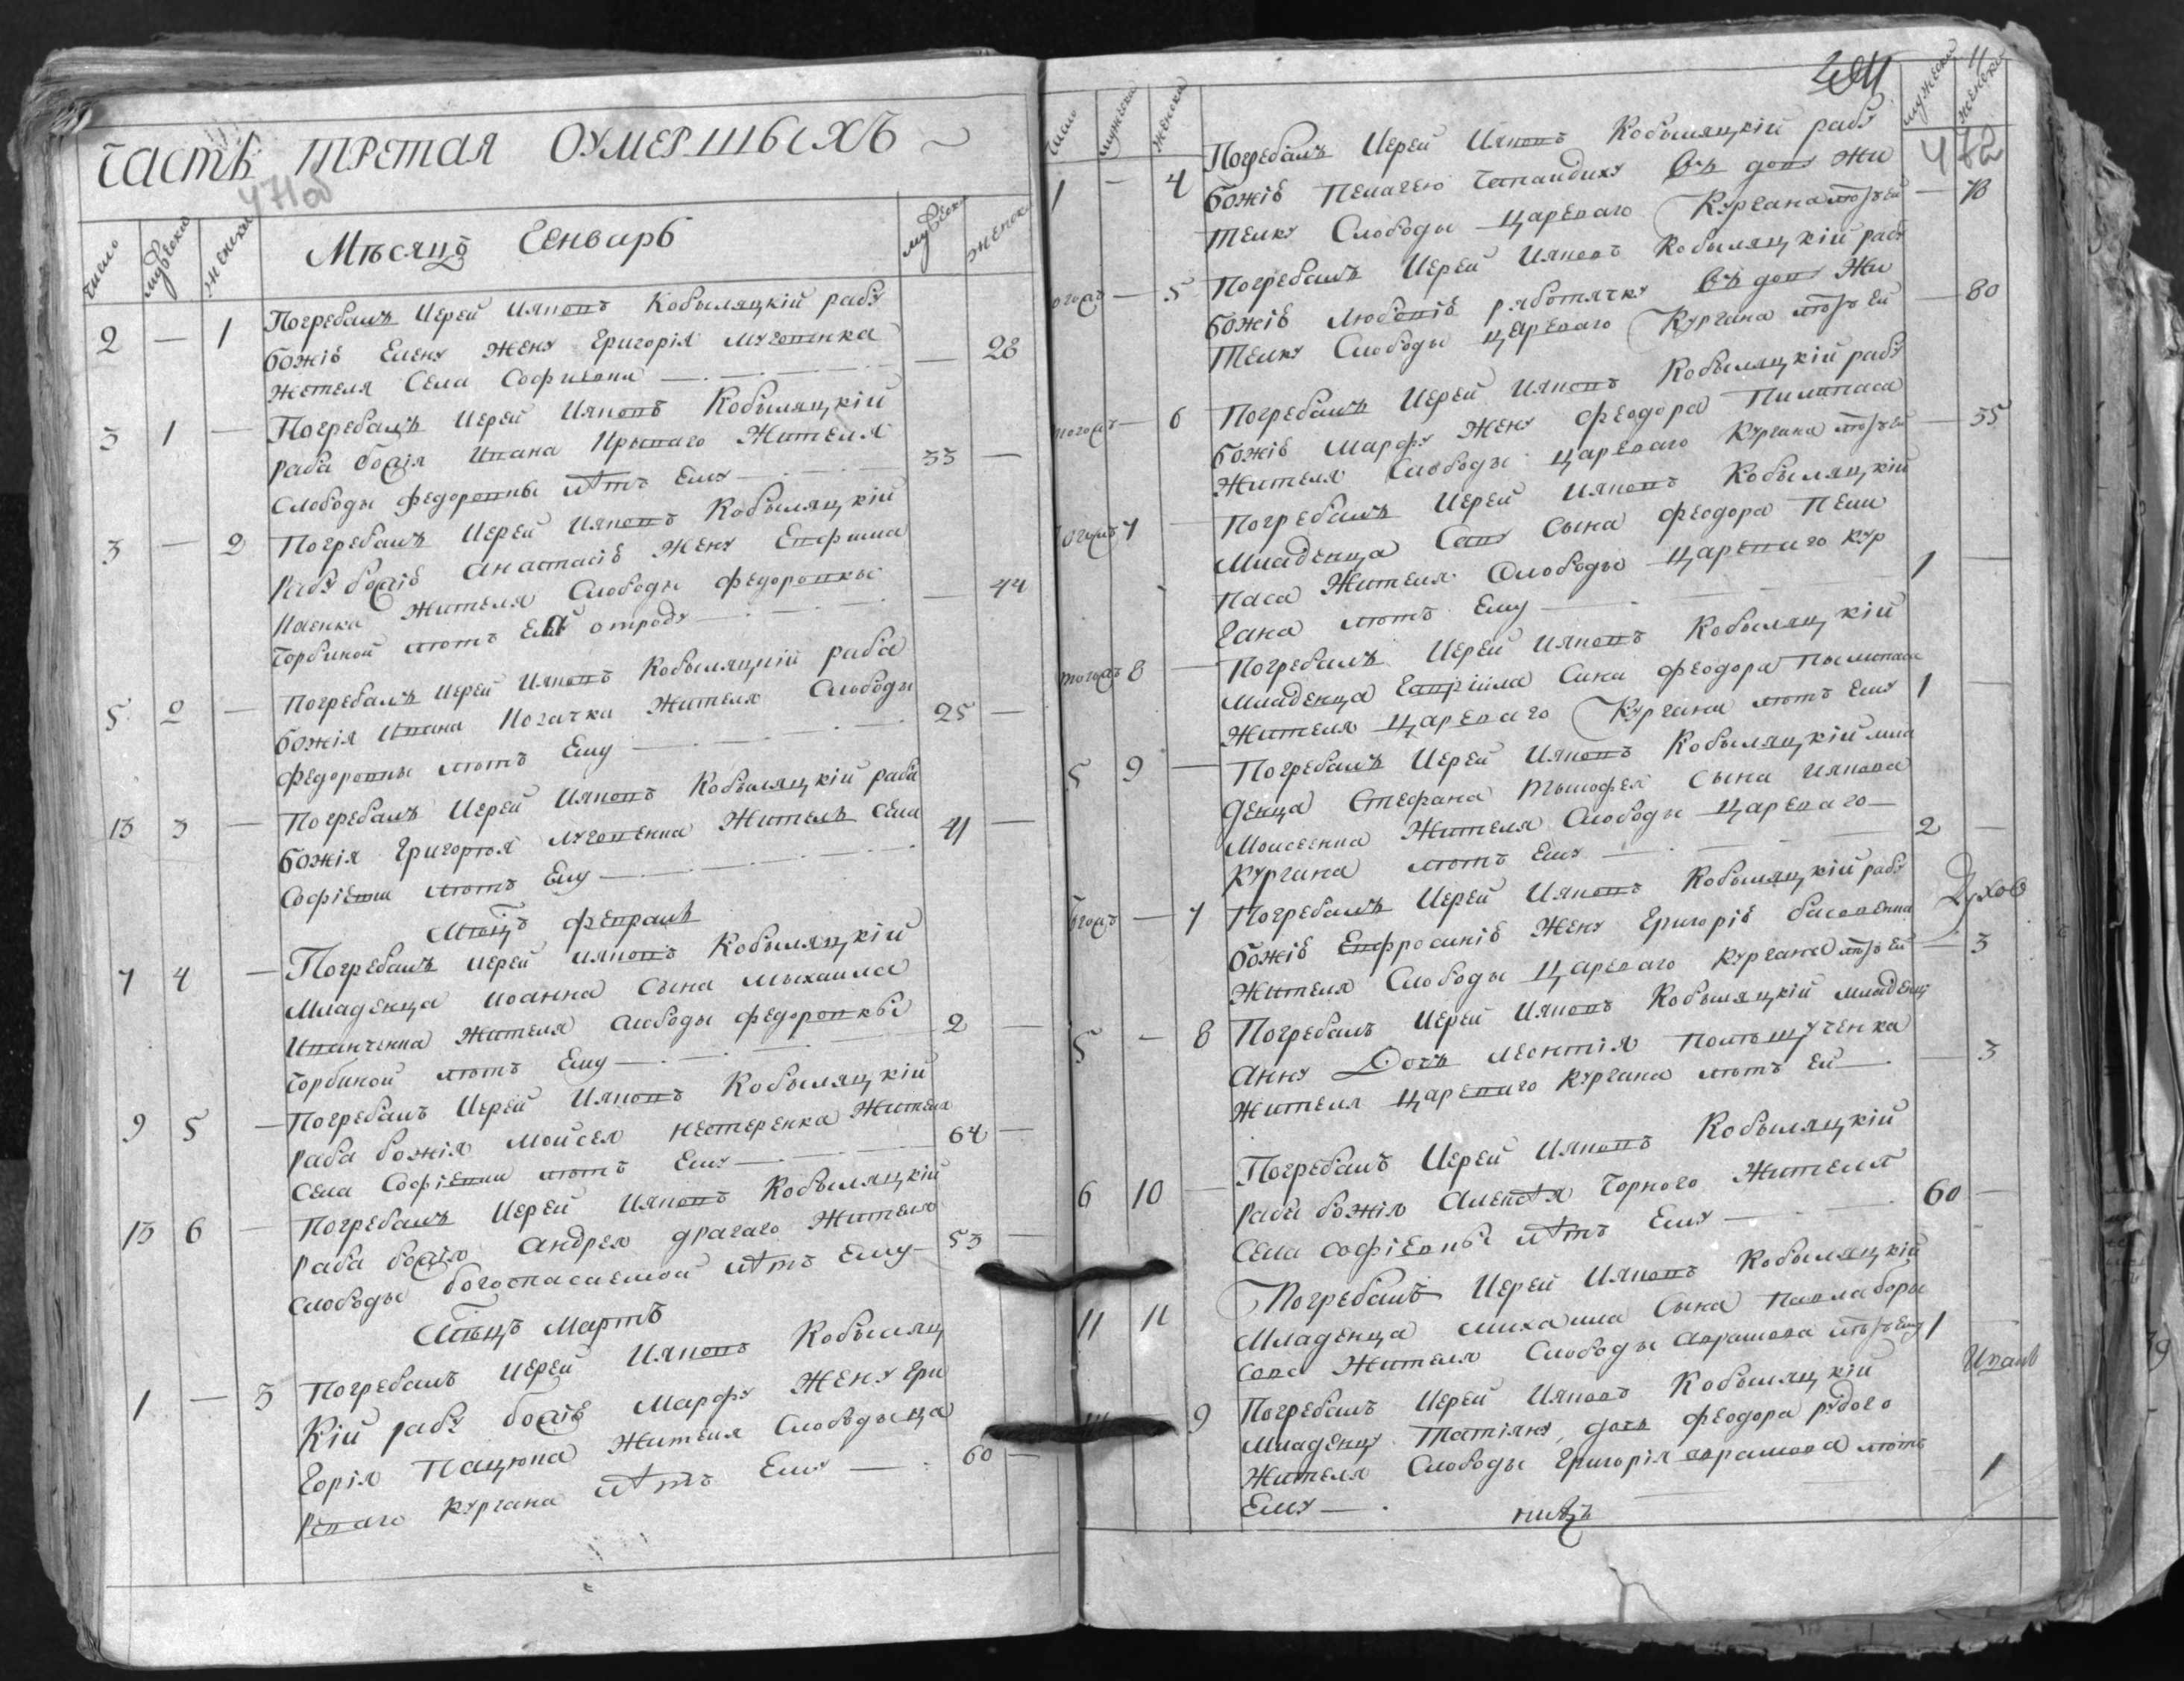 Часть третая оумершыхъ
471об
число мужеска женска
Мѣсяцъ Генварь
мужеска женска
2 — 1 Погребалъ ИерейИяковъ Кобыляцкій рабу
божію Елену жену Григорія Луговенка
жителя Села Софиевки — 28
3 1 — Погребалъ ИерейИяковъ Кобыляцкій
раба божія Ивана Жителя
Слободы Федоровны лѣтъ Ему 33 —
3 — 2 Погребалъ ИерейИяковъ Кобыляцкій
рабу божію Анастасію Жену Евфима
Жителя Слободы Федоровкы
Горбиной лѣтъ Ей отроду — 44
5 2 — Погребалъ ИерейИяковъ Кобыляцкій раба
божія Ивана Жителя Слободы
Федоровны лѣтъ Ему 25 —
13 3 — Погребалъ ИерейИяковъ Кобыляцкій раба
божія Григорія Луговенка Жителъ Села
Софіевки лѣтъ Ему 41 —
Мѣсцъ Февралъ
7 4 — Погребалъ Иерей Ияковъ Кобыляцкій
Младенца Иоанна Сына Мыхаила
Иванченка Жителя Слободы Федоровкы
Горбиной лѣтъ Ему 2 —
9 5 — Погребалъ Иерей Ияковъ Кобыляцкій
раба божія Мойсея Нестеренка Жителя
Села Софіевки лѣтъ Ему 64 —
13 6 — Погребалъ Иерей Ияковъ Кобыляцкій
раба божія Андрея Драгаго Жителя
Слободы богоспасаемой лѣтъ Ему 53 —
Мѣсцъ Мартъ
1 — 3 Погребалъ Иерей Ияковъ Кобыляц
кій рабу божію Марфу Жену Гри
горія Пацюка Жителя Слободы ца
рѣваго Кургана лѣтъ Ему 60 —
число мужеска женска
мужеска женска
472
1 — 4 Погребалъ Иерей Ияковъ Кобыляцкій рабу
божію Пелагею въ дову Жи
телку Слободы Цареваго Кургана лѣтъ ей — 78
тогожъ — 5 Погребалъ Иерей Ияковъ Кобыляцкій рабу
божію Любовію въ дову Жи
телку Слободы Цареваго Кургана лѣтъ Ей — 80
тогожъ — 6 Погребалъ Иерей Ияковъ Кобыляцкій рабу
божію Марфу Жену Феодора Пилипаса
Жителя Слободы Цареваго Кургана лѣтъ ей — 35
тогожъ 7 — Погребалъ Иерей Ияковъ Кобыляцкій
Младенца Саву Сына Феодора Пели
паса Жителя Слободы Цареваго Кур
гана лѣтъ Ему 1 —
тогожъ 8 — Погребалъ Иерей Ияковъ Кобыляцкій
Младенца Гавріила Сина Феодора Пылипаса
Жителя Цареваго Кургана лѣтъ Ему 1 —
5 9 — Погребалъ Иерей Ияковъ Кобыляцкій мла
денца Стефана Тымофея Сына Иякова
Моисеенка Жителя Слободы Цареваго
Кургана лѣтъ Ему 2 —
тогожъ — 7 Погребалъ Иерей Ияковъ Кобыляцкій рабу
божію Евфросинію Жену Григорію
Жителя Слободы Цареваго Кургана лѣтъ ей — 3
Духов
5 — 8 Погребалъ Иерей Ияковъ Кобыляцкій младенц
Анну Дочъ Леонтія
Жителя Цареваго Кургана лѣтъ ей — 3
6 10 — Погребалъ Иерей Ияковъ Кобыляцкій
раба божія Алексѣя Чорного Жителя
Села Софіевны лѣтъ Ему 60 —
11 11 Погребалъ Иерей Ияковъ Кобыляцкій
Младенца Михаила Сына Павла бори
сова Жителя Слободы Аврамова лѣтъ Ему 1 —
9 Погребалъ Иерей Ияковъ Кобыляцкій
Младенцу Татіяну дочъ Феодора Рудого
Жителя Слободы Григорія Аврамова лѣтъ
Ему — 1
Иванъ